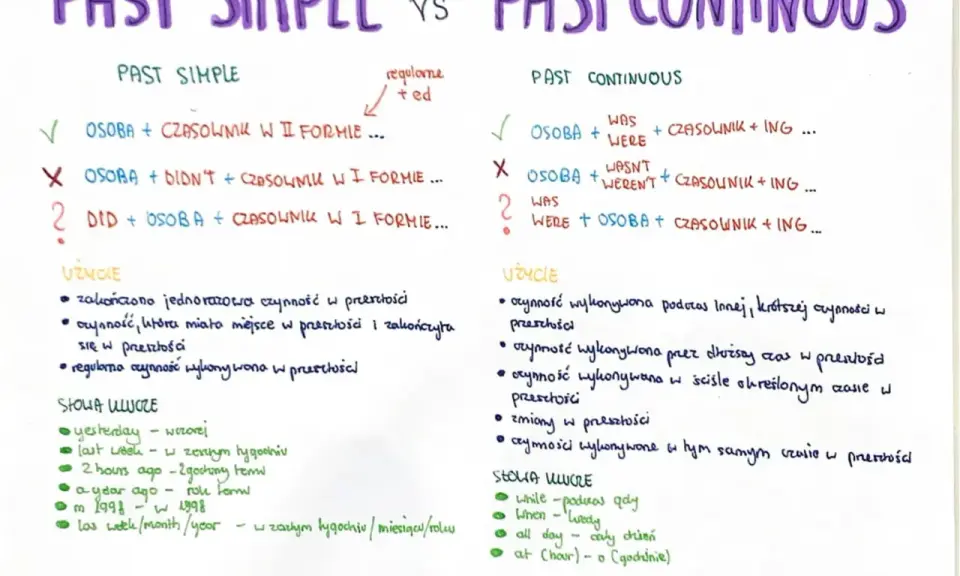 PAST SIMPLE VS PAST CONTINUOUS
PAST SIMPLE
regularne
+ ed
✓ OSOBA + CZASOWNIK W II FORMIE ...
X OSOBA + DIDN'T + CZASOWNIK W I FORMIE ...
? DID + OSOBA + CZASOWNIK W I FORMIE ...
UŻYCIE
• zakończona jednorazowa czynność w przeszłości
• czynność, która miała miejsce w przeszłości i zakończyła
się w przeszłości
• regularna czynność wykonywana w przeszłości
SŁOWA KLUCZE
• yesterday - wczoraj
• last week - w zeszłym tygodniu
• 2 hours ago - 2 godziny temu
• a year ago - rok temu
• in 1998 - w 1998
• las week/month/year - w zeszłym tygodniu/miesiącu/roku
PAST CONTINUOUS
✓ OSOBA + WAS
WERE + CZASOWNIK + ING ...
X OSOBA + WASN'T
WEREN'T + CZASOWNIK + ING ...
? WAS
WERE + OSOBA + CZASOWNIK + ING ...
UŻYCIE
• czynność wykonywana podczas innej, krótszej czynności w
przeszłości
• czynność wykonywana przez dłuższy czas w przeszłości
• czynność wykonywana w ściśle określonym czasie w
przeszłości
• zmiany w przeszłości
• czynności wykonywane w tym samym czasie w przeszłości
SŁOWA KLUCZE
• while - podczas gdy
• when - kiedy
• all day - cały dzień
• at (hour) - o (godzinie)